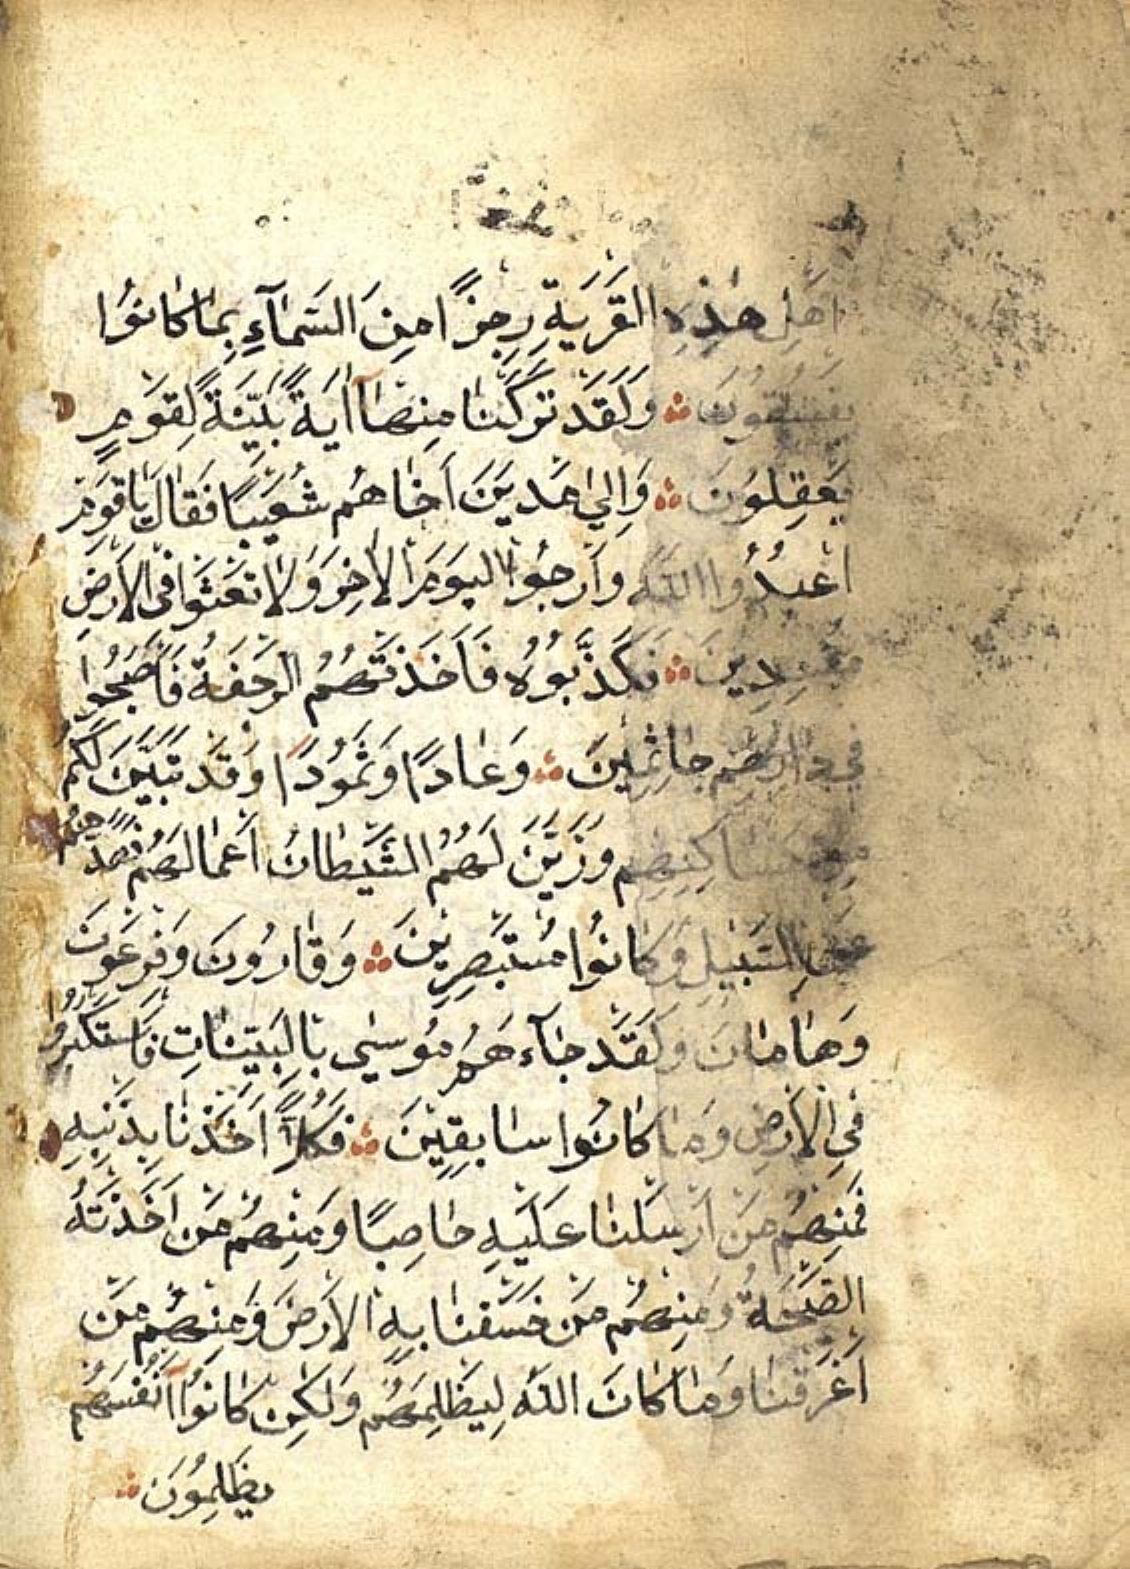 اَهلِ هٰذِهِ القَريَةِ رِجزًا مِنَ السَّمَآءِ بِمَا كَانُوا
يَفسُقُونَ وَلَقَد تَرَكنَا مِنهَآ اٰيَةً بَيِّنَةً لِقَومٍ
يَعقِلُونَ وَاِلىٰ مَديَنَ اَخَاهُم شُعَيبًا فَقَالَ يَا قَومِ
اعبُدُوا اللهَ وَارجُوا اليَومَ الاٰخِرَ وَلَا تَعثَوا فِى الاَرضِ
مُفسِدِينَ فَكَذَّبُوهُ فَاَخَذَتهُمُ الرَّجفَةُ فَاَصبَحُوا
فِي دَارِهِم جَاثِمِينَ وَعَادًا وَثَمُودَا وَقَد تَبَيَّنَ لَكُم
مِن مَسَاكِنِهِم وَزَيَّنَ لَهُمُ الشَّيطَانُ اَعمَالَهُم فَصَدَّهُم
عَنِ السَّبِيلِ وَكَانُوا مُستَبصِرِينَ وَقَارُونَ وَفِرعَونَ
وَهَامَانَ وَلَقَد جَآءَهُم مُوسىٰ بِالبَيِّنَاتِ فَاستَكبَرُوا
فِي الاَرضِ وَمَا كَانُوا سَابِقِينَ فَكُلًّا اَخَذنَا بِذَنبِهِ
فَمِنهُم مَن اَرسَلنَا عَلَيهِ حَاصِبًا وَمِنهُم مَن اَخَذَتهُ
الصَّيحَةُ وَمِنهُم مَن خَسَفنَا بِهِ الاَرضَ وَمِنهُم مَن
اَغرَقنَا وَمَا كَانَ اللهُ لِيَظلِمَهُم وَلٰكِن كَانُوآ اَنفُسَهُم
يَظلِمُونَ